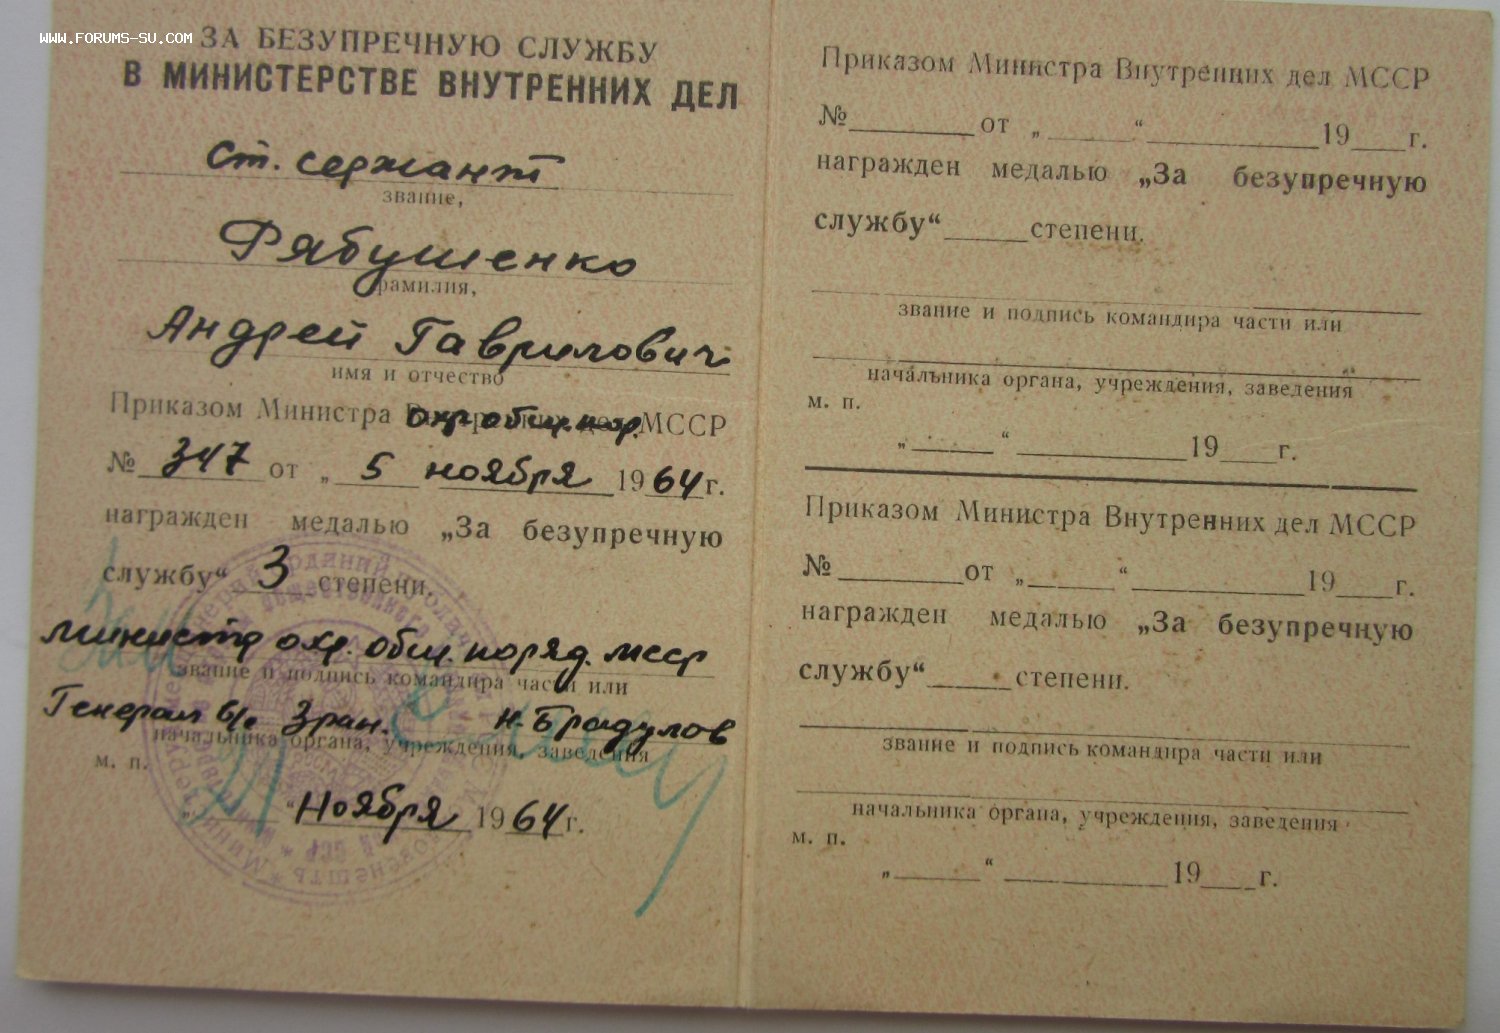 WWW.FORUMS-SU.COM
ЗА БЕЗУПРЕЧНУЮ СЛУЖБУ
В МИНИСТЕРСТВЕ ВНУТРЕННИХ ДЕЛ
Ст. сержант
звание,
Рябушенко
фамилия,
Андрей Гаврилович
имя и отчество
Приказом Министра охр. общ. пор. МССР
№ 347 от „ 5 ноября 1964 г.
награжден медалью „За безупречную
службу“ 3 степени.
министр охр. общ. поряд. МССР
звание и подпись командира части или
Генерал в/с 3 ран. Н. Брадулов
начальника органа, учреждения, заведения
м. п.
„ “ Ноября 1964 г.
Приказом Министра Внутренних дел МССР
№ от „ “ 19 г.
награжден медалью „За безупречную
службу“ степени.
звание и подпись командира части или
начальника органа, учреждения, заведения
м. п.
„ “ 19 г.
Приказом Министра Внутренних дел МССР
№ от „ “ 19 г.
награжден медалью „За безупречную
службу“ степени.
звание и подпись командира части или
начальника органа, учреждения, заведения
м. п.
„ “ 19 г.